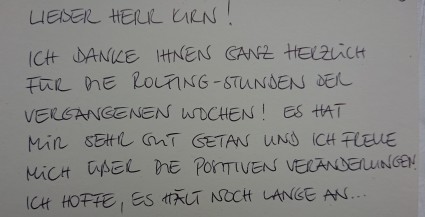 LIEBER HERR KIRN!
ICH DANKE IHNEN GANZ HERZLICH
FÜR DIE ROLFING-STUNDEN DER
VERGANGENEN WOCHEN! ES HAT
MIR SEHR GUT GETAN UND ICH FREUE
MICH ÜBER DIE POSITIVEN VERÄNDERUNGEN.
ICH HOFFE, ES HÄLT NOCH LANGE AN...